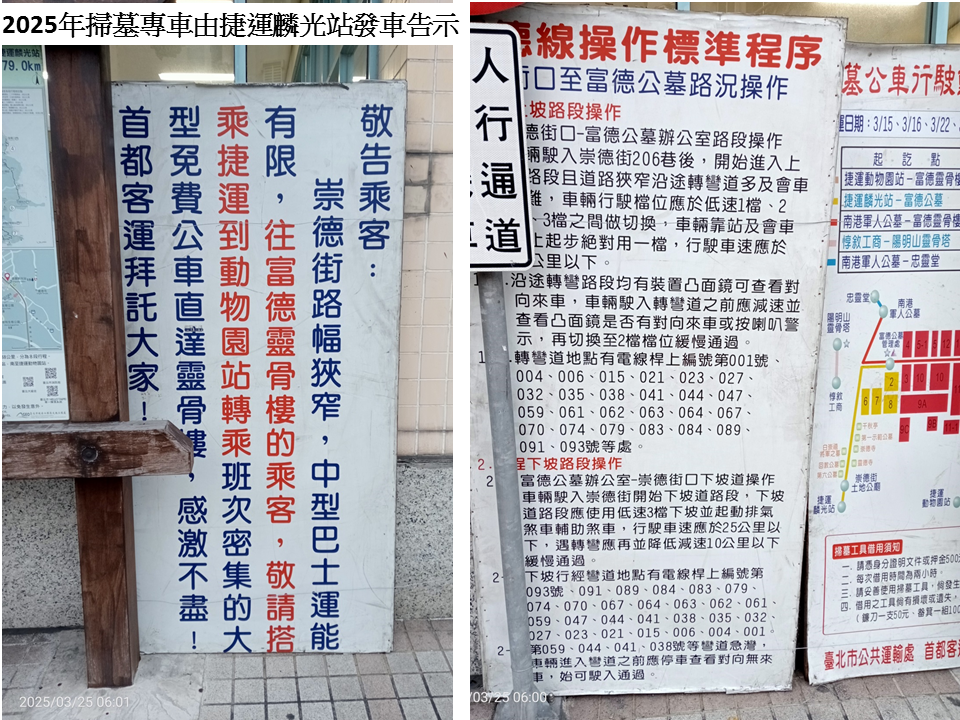 2025年掃墓專車由捷運麟光站發車告示
捷運麟光站
79.0km
敬告乘客：
崇德街路幅狹窄，中型巴士運能
有限，往富德靈骨樓的乘客，敬請搭
乘捷運到動物園站轉乘班次密集的大
型免費公車直達靈骨樓，感激不盡！
首都客運拜託大家！
2025/03/25 06:01
人行通道
德線操作標準程序
街口至富德公墓路況操作
上坡路段操作
德街口-富德公墓辦公室路段操作
輛駛入崇德街206巷後，開始進入上
路段且道路狹窄沿途轉彎道多及會車
難，車輛行駛檔位應於低速1檔、2
、3檔之間做切換，車輛靠站及會車
上起步絕對用一檔，行駛車速應於
公里以下。
沿途轉彎路段均有裝置凸面鏡可查看對
向來車，車輛駛入轉彎道之前應減速並
查看凸面鏡是否有對向來車或按喇叭警
示，再切換至2檔檔位緩慢通過。
轉彎道地點有電線桿上編號第001號、
004、006、015、021、023、027、
032、035、038、041、044、047、
059、061、062、063、064、067、
070、074、079、083、084、089、
091、093號等處。
2.
程下坡路段操作
富德公墓辦公室-崇德街口下坡道操作
車輛駛入崇德街開始下坡道路段，下坡
道路段應使用低速3檔下坡並起動排氣
煞車輔助煞車，行駛車速應於25公里以
下，遇轉彎應再並降低減速10公里以下
緩慢通過。
下坡行經彎道地點有電線桿上編號第
093號、091、089、084、083、079、
074、070、067、064、063、062、061、
059、047、044、041、038、035、032、
027、023、021、015、006、004、001。
第059、044、041、038號等彎道急灣，
車輛進入彎道之前應停車查看對向無來
車，始可駛入通過。
/03/25 06:00
墓公車行駛
日期：3/15、3/16、3/22、
起訖點
捷運動物園站－富德靈骨樓
捷運麟光站－富德公墓
南港軍人公墓－富德靈骨樓
惇敘工商－陽明山靈骨塔
南港軍人公墓－忠靈堂
忠靈堂
南港
軍人公墓
陽明山
靈骨塔
富德公墓
管理處
惇敘
工商
4
5-1
8
12
2
3
10
10
6
7
8
9A
9C
崇德街
土地公廟
捷運
麟光站
捷運
動物園站
掃墓工具借用須知
一、請憑身分證明文件或押金500
二、每次借用時間為兩小時。
三、請妥善使用掃墓工具，倘發生
四、借用之工具倘有損壞或遺失，
（鐮刀一支50元、畚箕一組100
臺北市公共運輸處 首都客運